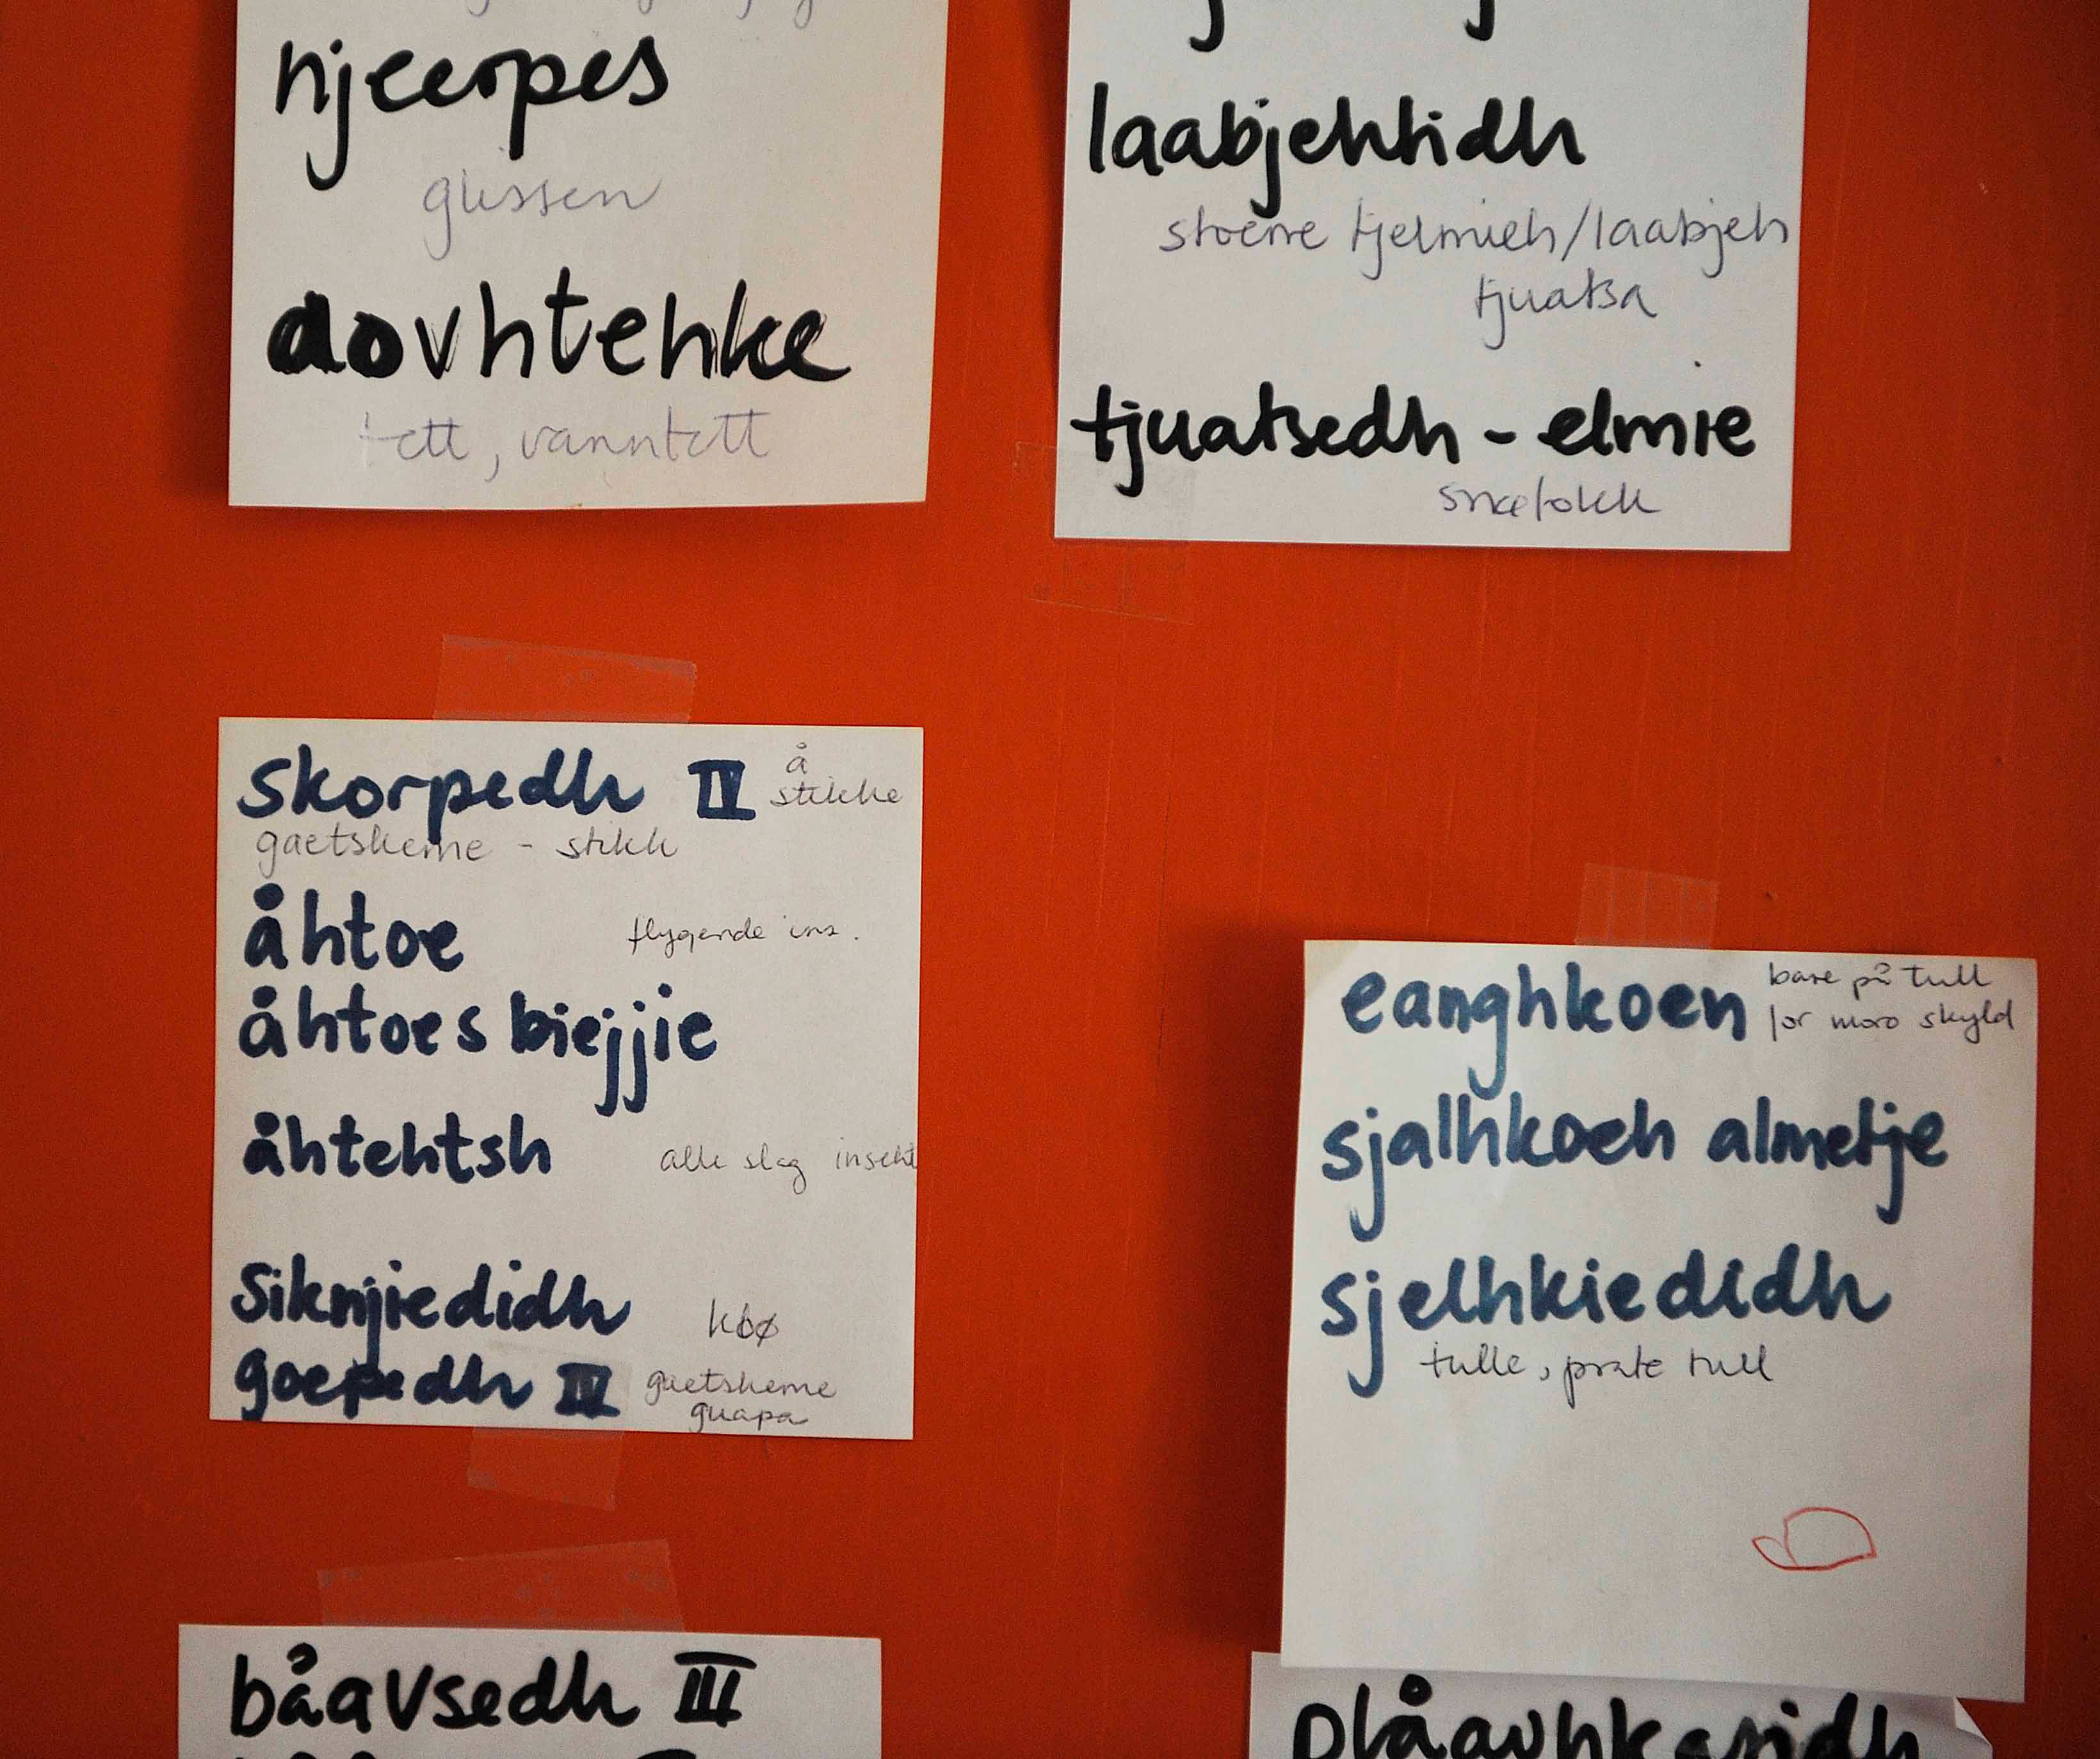 njeerpes
glissen
dovhtehke
tett, vanntett
laabjehtidh
stoerre tjelmieh/laabjeh
tjuatsa
tjuatsedh - elmie
snøfokk
skorpedh IV å
stikke
gaetskeme - stikk
åhtoe flygende ins.
åhtoes biejjie
åhtehtsh alle slag insekt
siknjiedidh klø
goepedh IV gaetskeme
guapa
eanghkoen bare på tull
for moro skyld
sjalhkoeh almetje
sjelhkiedidh
tulle, prate tull
båavsedh III